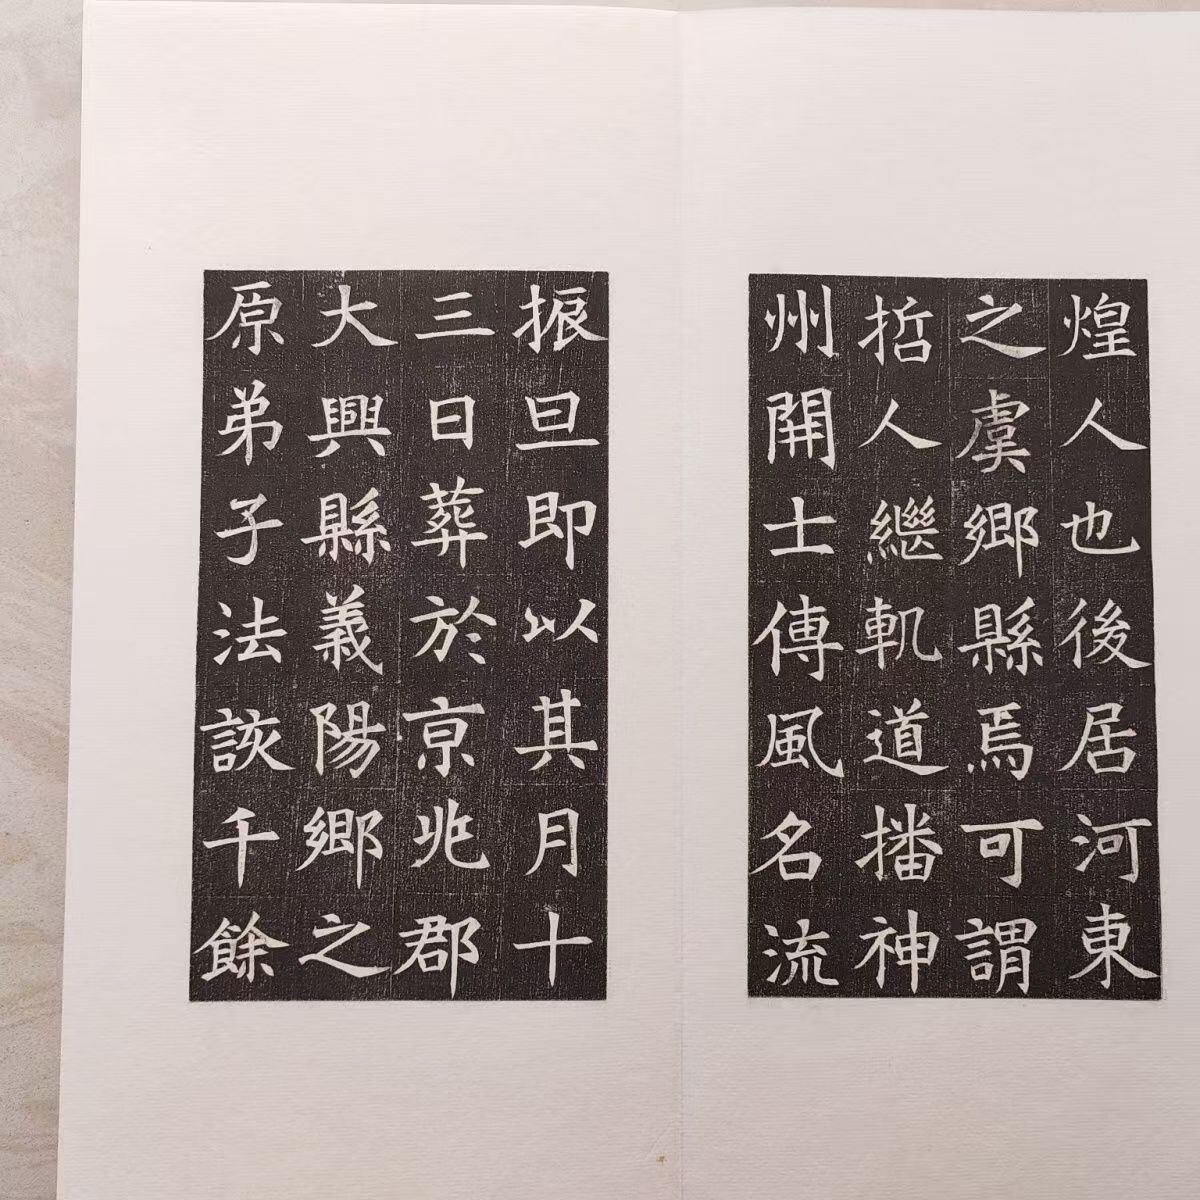 煌人也後居河東
之虞鄉縣焉可謂
哲人繼軌道播神
州開士傳風名流
振旦即以其月十
三日葬於京兆郡
大興縣義陽鄉之
原弟子法該千餘